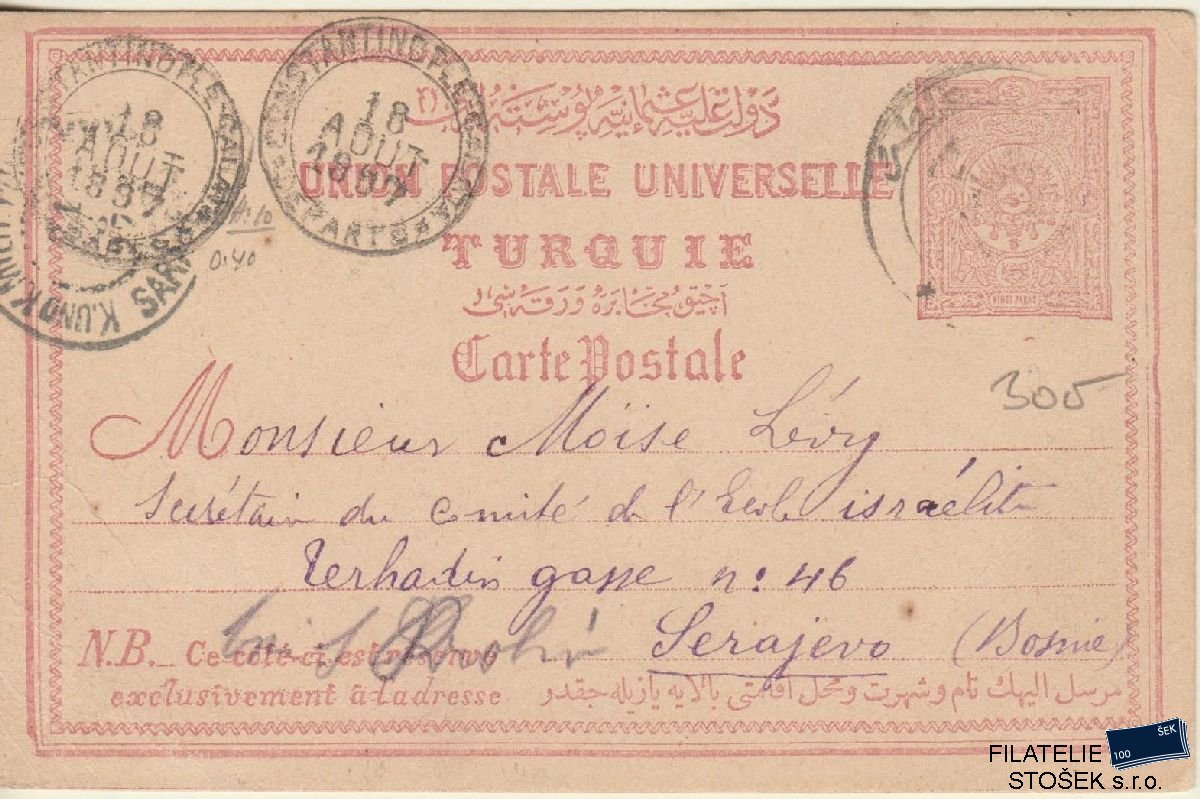 CONSTANTINOPLE-GALATA
18
AOUT
1897
DEPARTS
CONSTANTINOPLE-GALATA
18
AOUT
1897
DEPARTS
K.UND K. MILIT. SARA
دولت عليه عثمانيه پوسته لرى
UNION POSTALE UNIVERSELLE
TURQUIE
آچيق مخابره ورقه سى
Carte Postale
VINGT PARAS
0.40
300
Monsieur Moïse Lévy
Secrétaire du Comité de l'Ecole israélite
Terhadin gasse n: 46
Serajevo (Bosnie)
N.B. Ce côté-ci est réservé
exclusivement à l'adresse
مرسل اليهك نام و شهرت و محل اقامتى بالايه يازيله جقدر
FILATELIE
STOŠEK s.r.o.
100
ŠEK